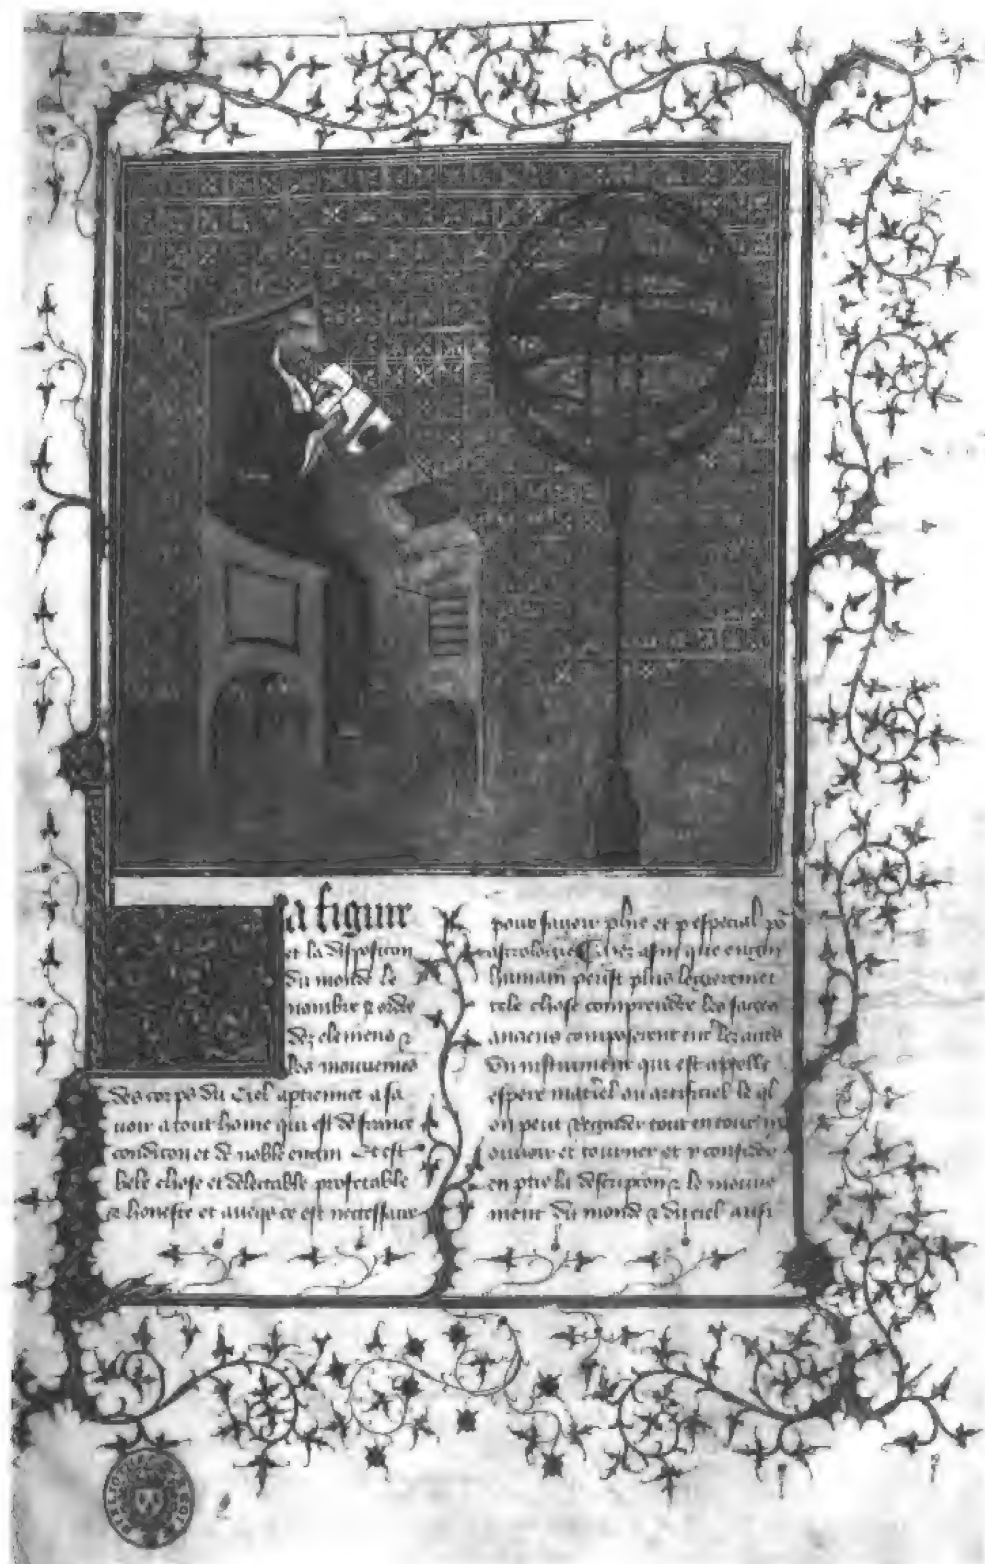 La figure
et la disposicion
du monde le
nombre & ordre
dez elemens &
les mouvemens
des corps du ciel aptiennet a sa
uoir a tout home qui est de franche
condicion et de noble engin Et est
bele chose et delectable profitable
& honeste et auecqs ce est necessaire
pour sauoir phie et p especial po
astrologie Et dez afin que engin
humain peust plus legierement
tele chose comprendre les sages
anciens composerent entre lez autres
Un instrument qui est appelle
espere materiel ou artificiel le ql
on peut regarder tout entour
mouuoir et tourner et y considerer
en ptie la descripcion & le mouue
ment du monde & du ciel ausi